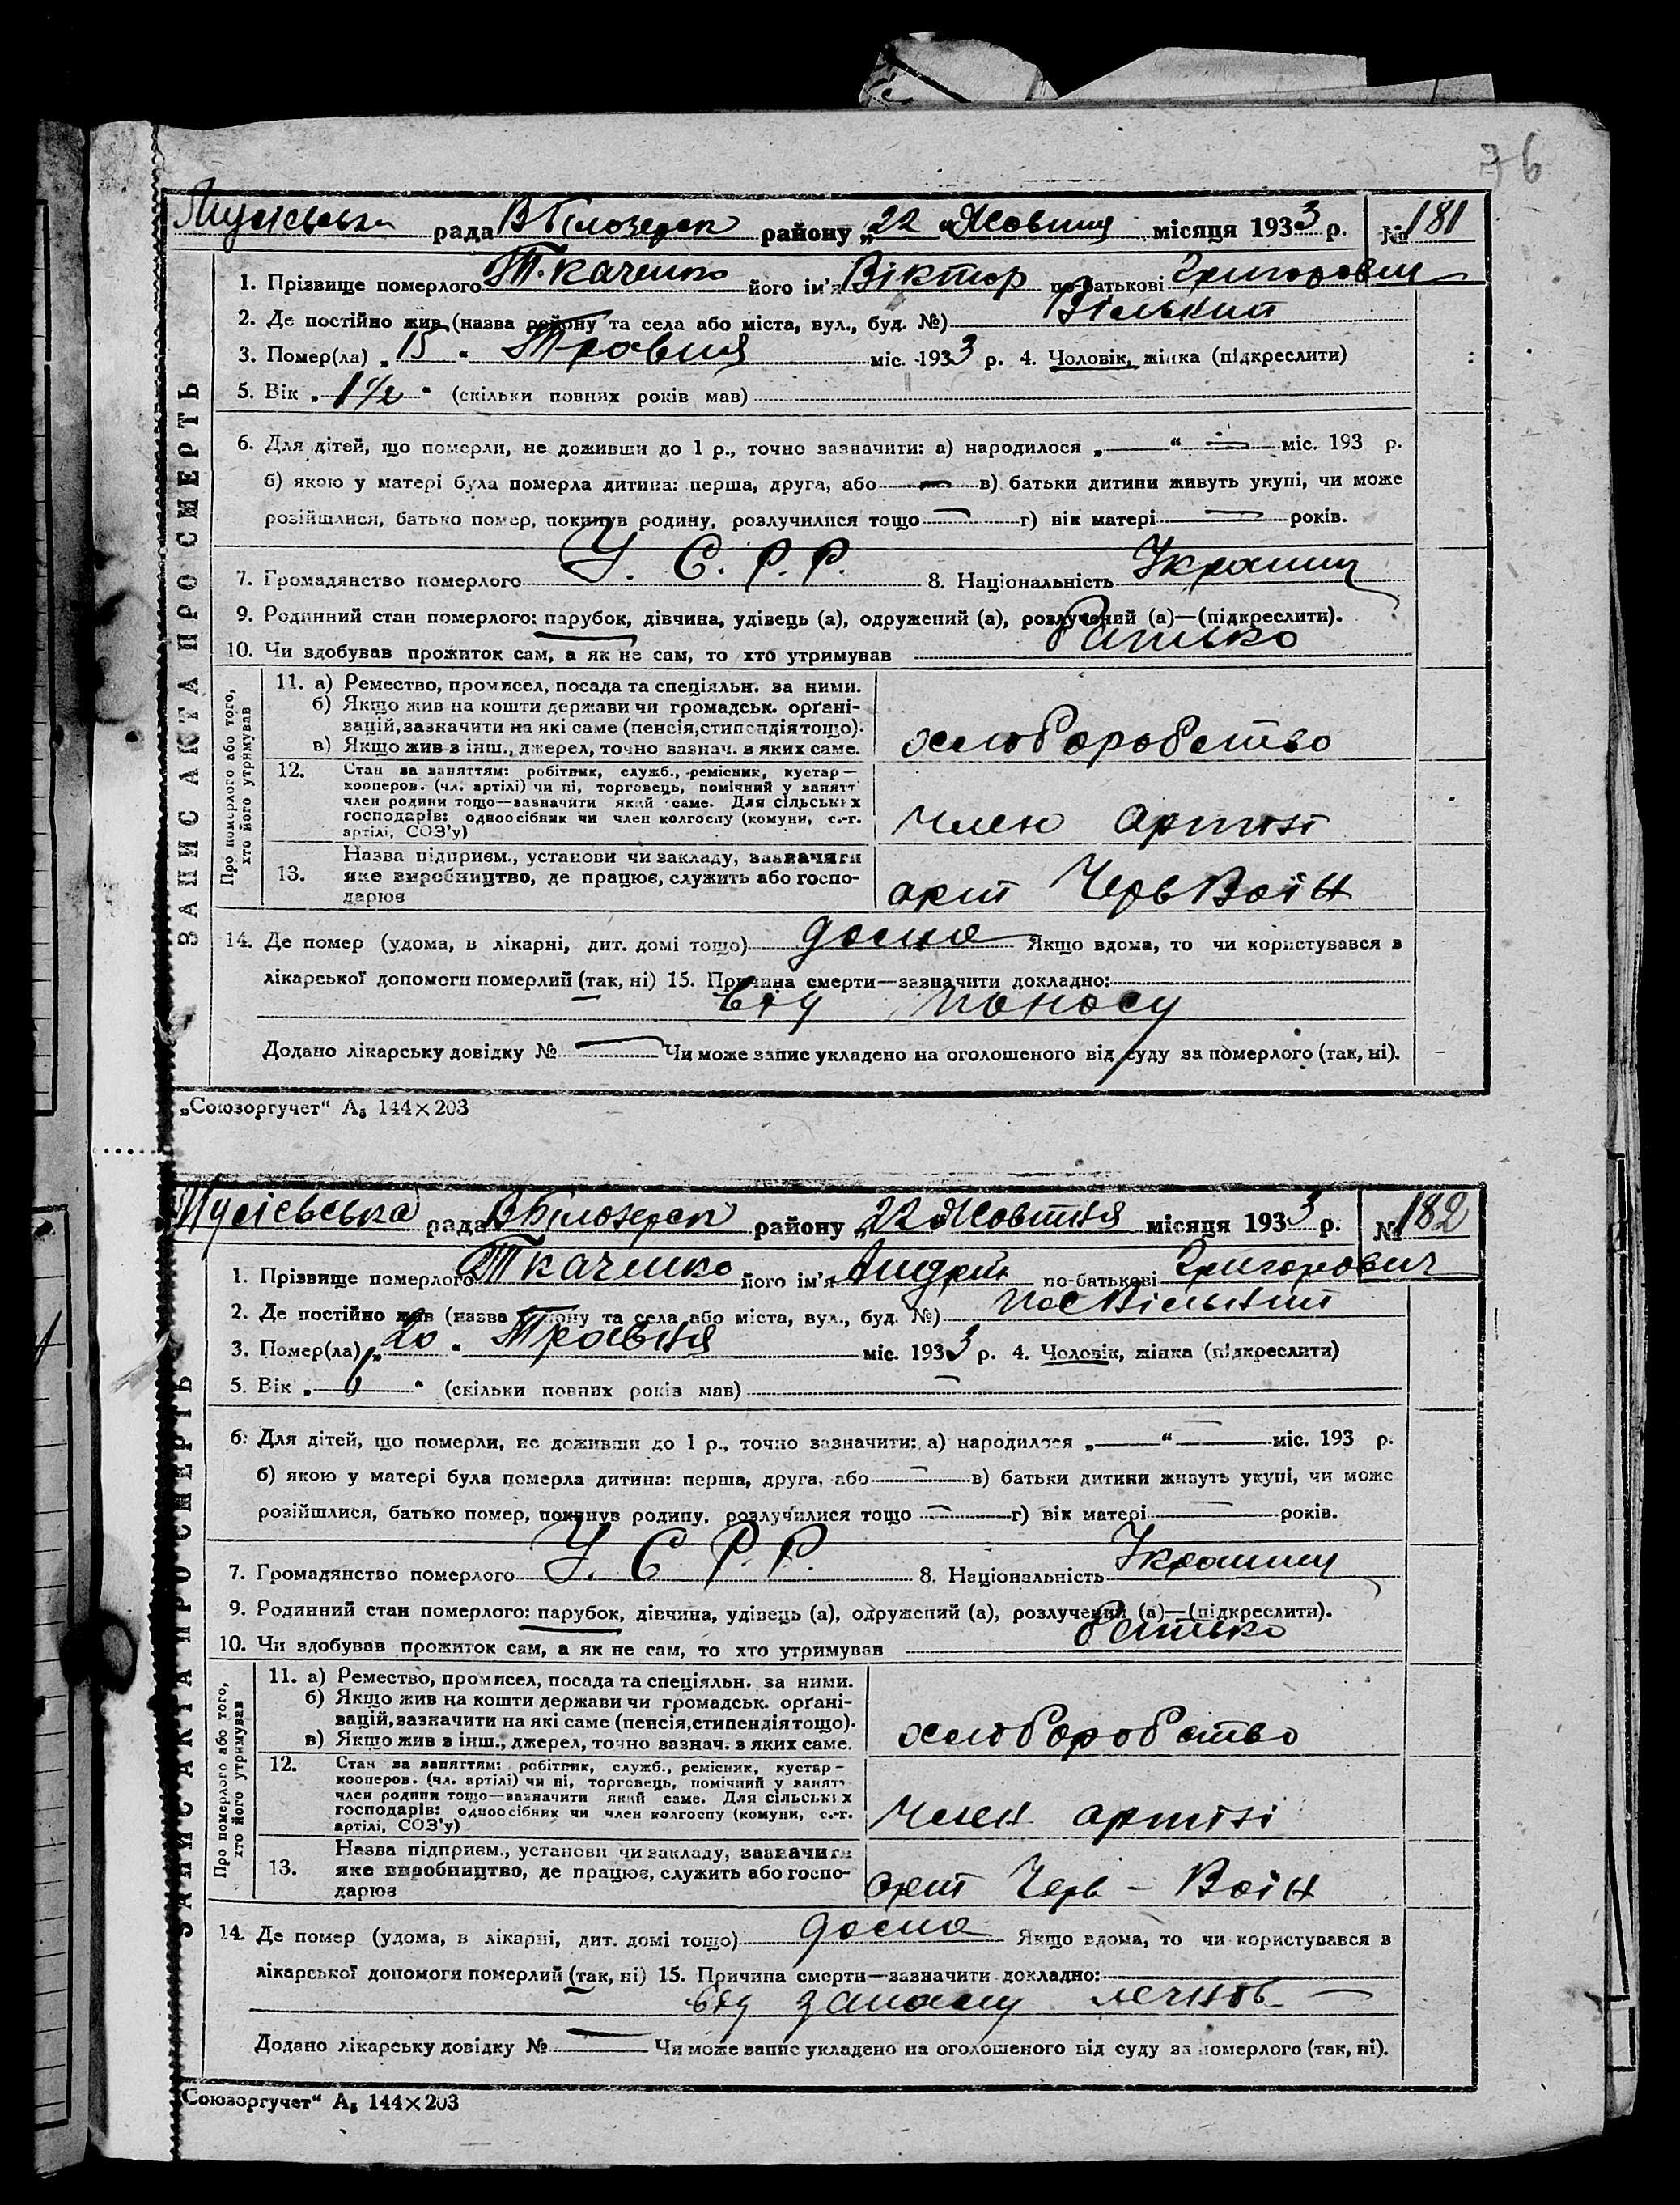 36
рада В Білозерск району „22 „ Жовтня місяця 1933 р. № 181
ЗАПИС АКТА ПРО СМЕРТЬ
1. Прізвище померлого Ткаченко його ім'я Віктор по-батькові Григорович
2. Де постійно жив (назва району та села або міста, вул., буд. №) Вільний
3. Помер(ла) „ 15 “ Травня міс. 1933 р. 4. Чоловік, жінка (підкреслити)
5. Вік „ 1 1/2 “ (скільки повних років мав)
6. Для дітей, що померли, не доживши до 1 р., точно зазначити: а) народилося „ — “ — міс. 193 р.
б) якою у матері була померла дитина: перша, друга, або — в) батьки дитини живуть укупі, чи може
розійшлися, батько помер, покинув родину, розлучилися тощо — г) вік матері — років.
7. Громадянство померлого У. С. Р. Р. 8. Національність Украинц
9. Родинний стан померлого: парубок, дівчина, удівець (а), одружений (а), розлучений (а)—(підкреслити).
10. Чи здобував прожиток сам, а як не сам, то хто утримував Батько
Про померлого або того, хто його утримував
11. а) Ремество, промисел, посада та спеціяльн. за ними.
б) Якщо жив на кошти держави чи громадськ. орґані-
зацій, зазначити на які саме (пенсія, стипендія тощо).
в) Якщо жив з інш., джерел, точно зазнач. з яких саме.
хліборобство
12. Стан за заняттям: робітник, служб., ремісник, кустар—
кооперов. (чл. артілі) чи ні, торговець, помічний у занятт
член родини тощо—зазначити який саме. Для сільських
господарів: одноосібник чи член колгоспу (комуни, с.-г.
артілі, СОЗ'у)
член артілі
13. Назва підприєм., установи чи закладу, зазначити
яке виробництво, де працює, служить або госпо-
дарює
арт Черв Воін
14. Де помер (удома, в лікарні, дит. домі тощо) дома Якщо вдома, то чи користувався з
лікарської допомоги померлий (так, ні) 15. Причина смерти—зазначити докладно:
від поносу
Додано лікарську довідку № — Чи може запис укладено на оголошеного від суду за померлого (так, ні).
„Союзоргучет“ А₅ 144×203
рада В Білозерск району „22 „ Жовтня місяця 1933 р. № 182
ЗАПИС АКТА ПРО СМЕРТЬ
1. Прізвище померлого Ткаченко його ім'я Андрій по-батькові Григорович
2. Де постійно жив (назва району та села або міста, вул., буд. №) пос Вільний
3. Помер(ла) „ 20 “ Травня міс. 1933 р. 4. Чоловік, жінка (підкреслити)
5. Вік „ “ (скільки повних років мав) —
6. Для дітей, що померли, не доживши до 1 р., точно зазначити: а) народилося „ — “ — міс. 193 р.
б) якою у матері була померла дитина: перша, друга, або — в) батьки дитини живуть укупі, чи може
розійшлися, батько помер, покинув родину, розлучилися тощо — г) вік матері — років.
7. Громадянство померлого У. С. Р. Р. 8. Національність Украинц
9. Родинний стан померлого: парубок, дівчина, удівець (а), одружений (а), розлучений (а)—(підкреслити).
10. Чи здобував прожиток сам, а як не сам, то хто утримував Батько
Про померлого або того, хто його утримував
11. а) Ремество, промисел, посада та спеціяльн. за ними.
б) Якщо жив на кошти держави чи громадськ. орґані-
зацій, зазначити на які саме (пенсія, стипендія тощо).
в) Якщо жив з інш., джерел, точно зазнач. з яких саме.
хліборобство
12. Стан за заняттям: робітник, служб., ремісник, кустар—
кооперов. (чл. артілі) чи ні, торговець, помічний у занятт
член родини тощо—зазначити який саме. Для сільських
господарів: одноосібник чи член колгоспу (комуни, с.-г.
артілі, СОЗ'у)
член артілі
13. Назва підприєм., установи чи закладу, зазначити
яке виробництво, де працює, служить або госпо-
дарює
арт Черв - Воін
14. Де помер (удома, в лікарні, дит. домі тощо) дома Якщо вдома, то чи користувався з
лікарської допомоги померлий (так, ні) 15. Причина смерти—зазначити докладно:
від запалу легнів —
Додано лікарську довідку № — Чи може запис укладено на оголошеного від суду за померлого (так, ні).
Союзоргучет“ А₅ 144×203